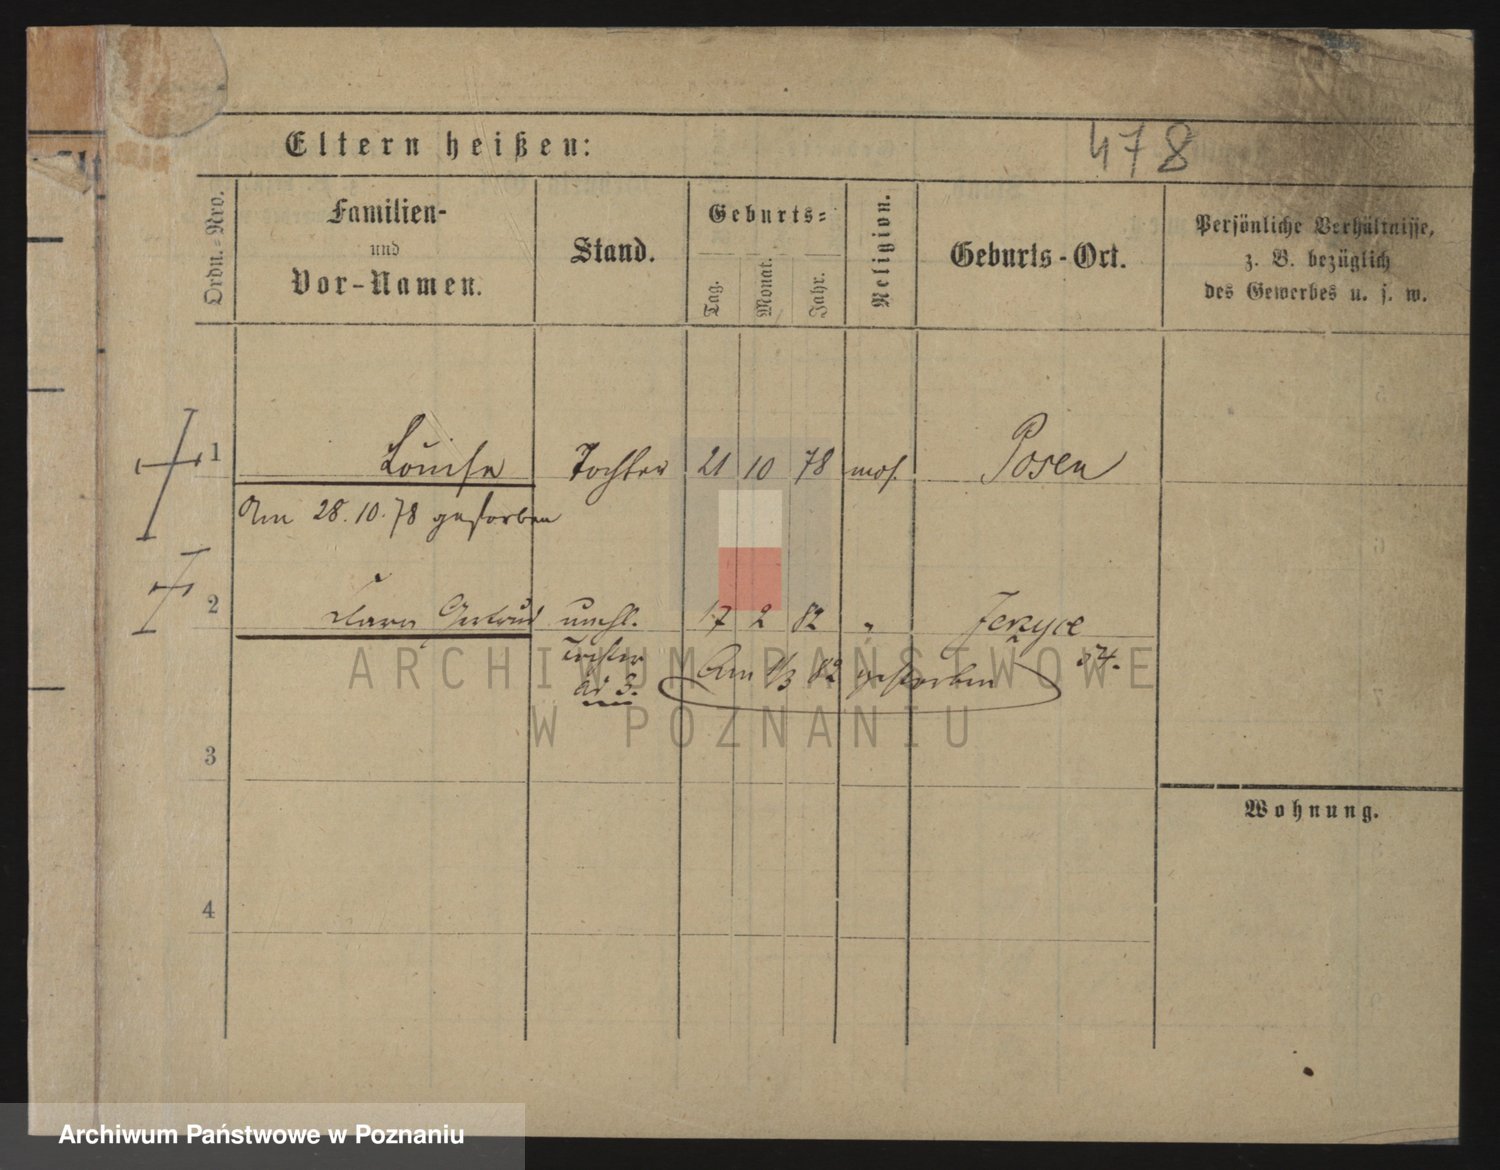 Eltern heißen:
478
Ordn.-Nro.
Familien-
und
Vor-Namen.
Stand.
Geburts-
Tag.
Monat.
Jahr.
Religion.
Geburts-Ort.
Persönliche Verhältnisse,
z. B. bezüglich
des Gewerbes u. s. w.
1 Louise Tochter 21 10 78 mos. Posen
Am 28.10.78 gestorben
2 Clara Gertrud unehl. 17 2 82 " Jerzyce
Tochter
ad 3.
Am 1/3 82 gestorben
37.
ARCHIWUM PAŃSTWOWE
W POZNANIU
3
Wohnung.
4
Archiwum Państwowe w Poznaniu